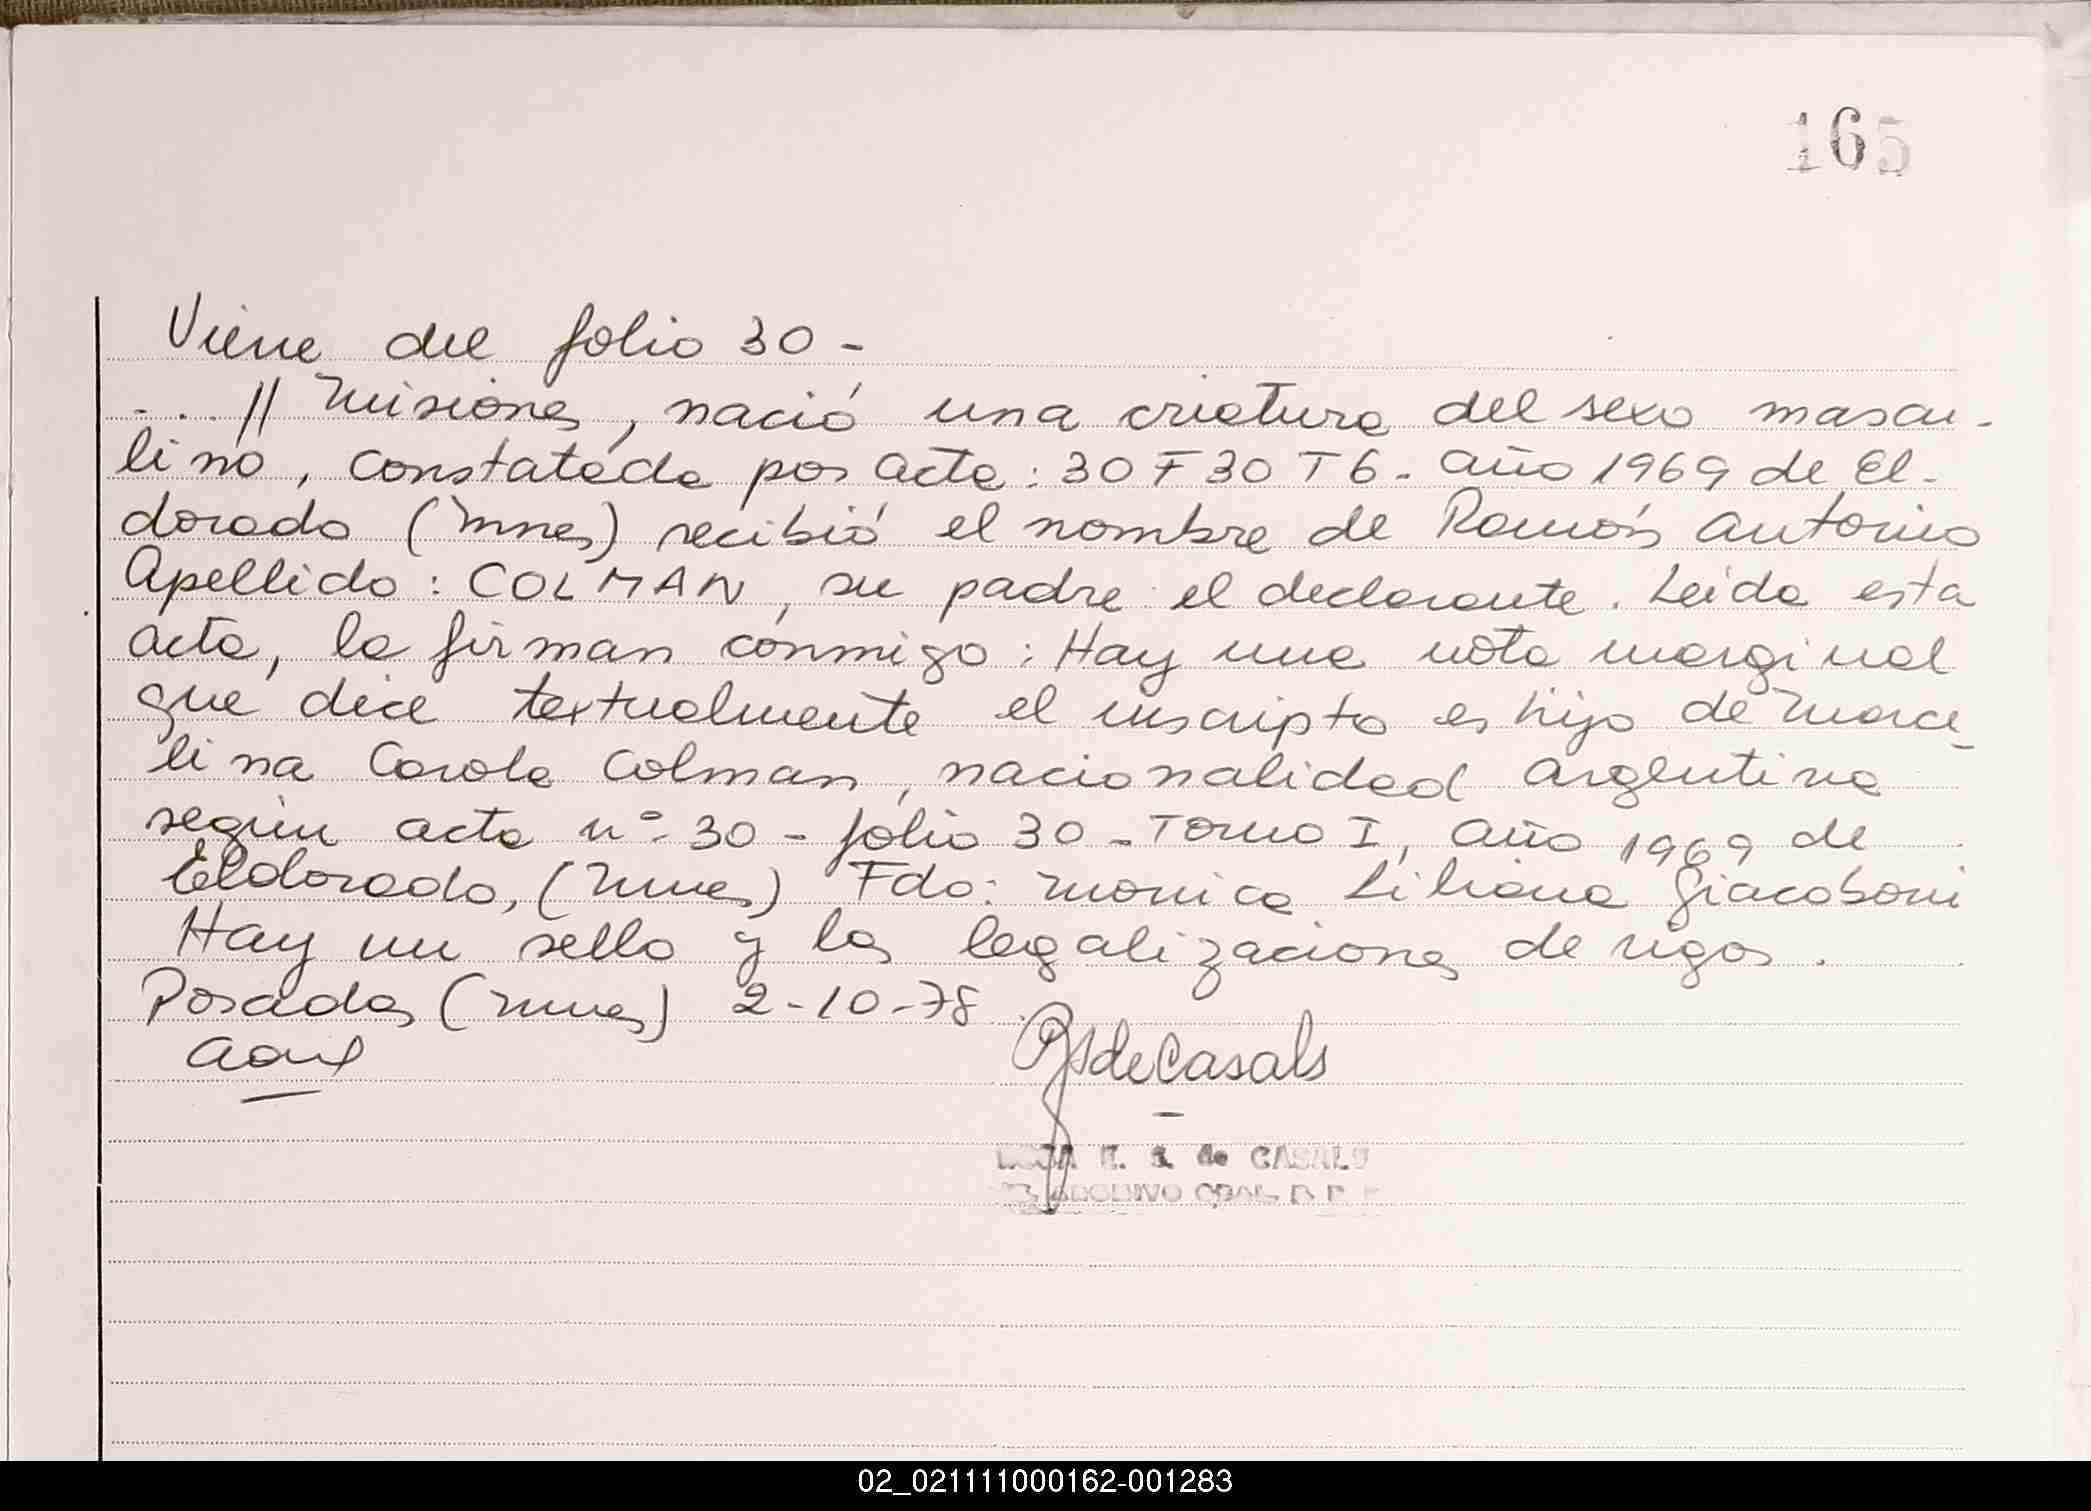 165
Viene del folio 30 -
... // Misiones, nació una criatura del sexo mascu-
lino, constatada por acta: 30 F 30 T 6. año 1969 de El-
dorado (Mnes) recibió el nombre de Ramón Antonio
Apellido: COLMAN, su padre el declarante. Leida esta
acta, la firman conmigo: Hay una nota marginal
que dice textualmente el inscripto es hijo de Marce-
lina Carola Colman, nacionalidad argentina
según acta nº 30 - folio 30 - Tomo I, año 1969 de
Eldorado, (Mnes) Fdo: Monica Liliana Giacoboni
Hay un sello y las legalizaciones de rigor.
Posadas (Mnes) 2-10-78
de Casals
E. S. de CASALS
02_021111000162-001283